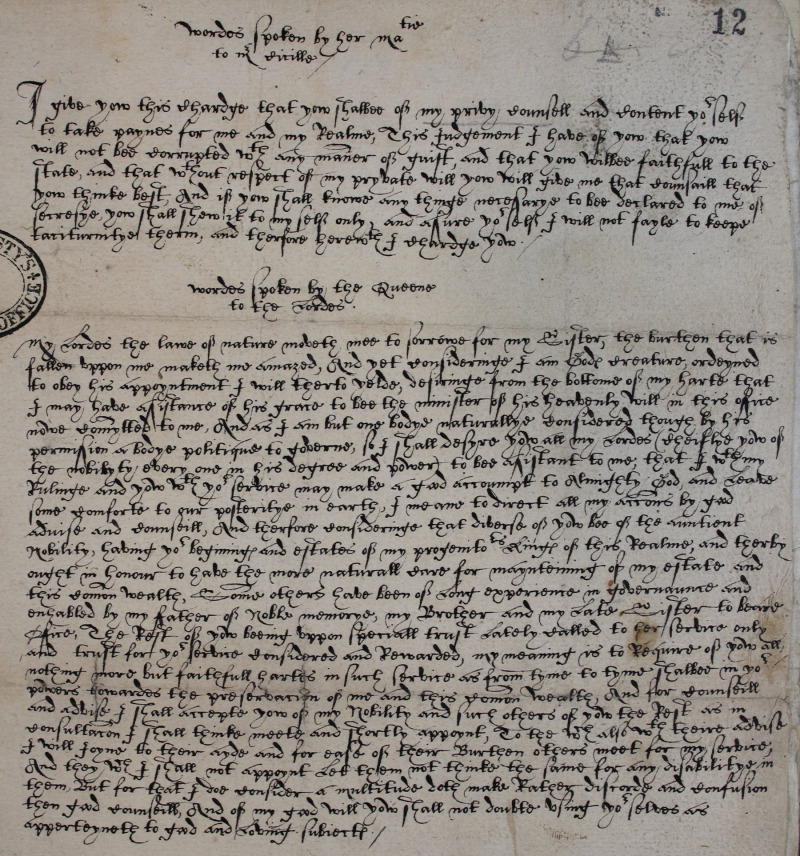 12
wordes spoken by her matie
to mr Cicille
I give yow this chardge that yow shalbee of my privy counsell and content yor self
to take paynes for me and my Realme, This Judgement I have of yow that yow
will not bee corrupted wth any maner of guift, and that yow wilbee faithfull to the
state, and that wthout respect of my pryvate will yow will give me that counsaill that
yow thinke best, And if yow shall knowe any thinge necessarye to bee declared to me of
secresye, yow shall shew it to my self only, and assure yor self I will not fayle to keepe
taciturnitye therin, and therfore herewth I chardge yow.
ETY'S
OFFICE
wordes spoken by the Queene
to the Lordes.
My Lordes the lawe of nature moveth mee to sorrowe for my Sister, the burthen that is
fallen uppon me maketh me amazed, And yet consideringe I am Godes Creature, ordeyned
to obey his appoyntment I will therto yelde, desiringe from the bottome of my harte that
I may have assistance of his grace to bee the minister of his heavenly will in this office
nowe comytted to me, And as I am but one bodye naturallye considered though by his
permission a bodye politique to governe, so I shall desyre yow all my Lordes cheiflye yow of
the nobility, every one in his degree and power, to bee assistant to me, that I wth my
Rulinge and yow wth yor service may make a good accoumpt to Almighty God, and leave
some comforte to our posteritye in earth, I meane to direct all my accons by good
advise and counseill, And therfore consideringe that diverse of yow bee of the auntient
Nobility, having yor beginings and estates of my progenitors Kinges of this Realme, and therby
ought in honour to have the more naturall care for maynteining of my estate and
this comon wealth, Some others have been of long experience in governaunce and
enhabled by my father of Noble memorye, my Brother and my late Sister to beare
Office, The Rest of yow beeing uppon speciall trust lately called to her service only
and trust for yor service considered and Rewarded, my meaning is to Require of yow all
nothing more but faithfull hartes in such service as from tyme to tyme shalbee in yor
powers towardes the preservacon of me and this comon wealth, And for counseill
and advise I shall accepte yow of my Nobility and such others of yow the Rest as in
consultacon I shall thinke meete and shortly appoynt, To the wch also wth theire advise
I will joyne to their ayde and for ease of their Burthen others meet for my service,
And they wch I shall not appoynt let them not thinke the same for any disabilitye in
them, But for that I doe consider a multitude doth make Rather discorde and confusion
then good counseill, And of my good will yow shall not doubte using yor selves as
apperteyneth to good and loving subiectes.